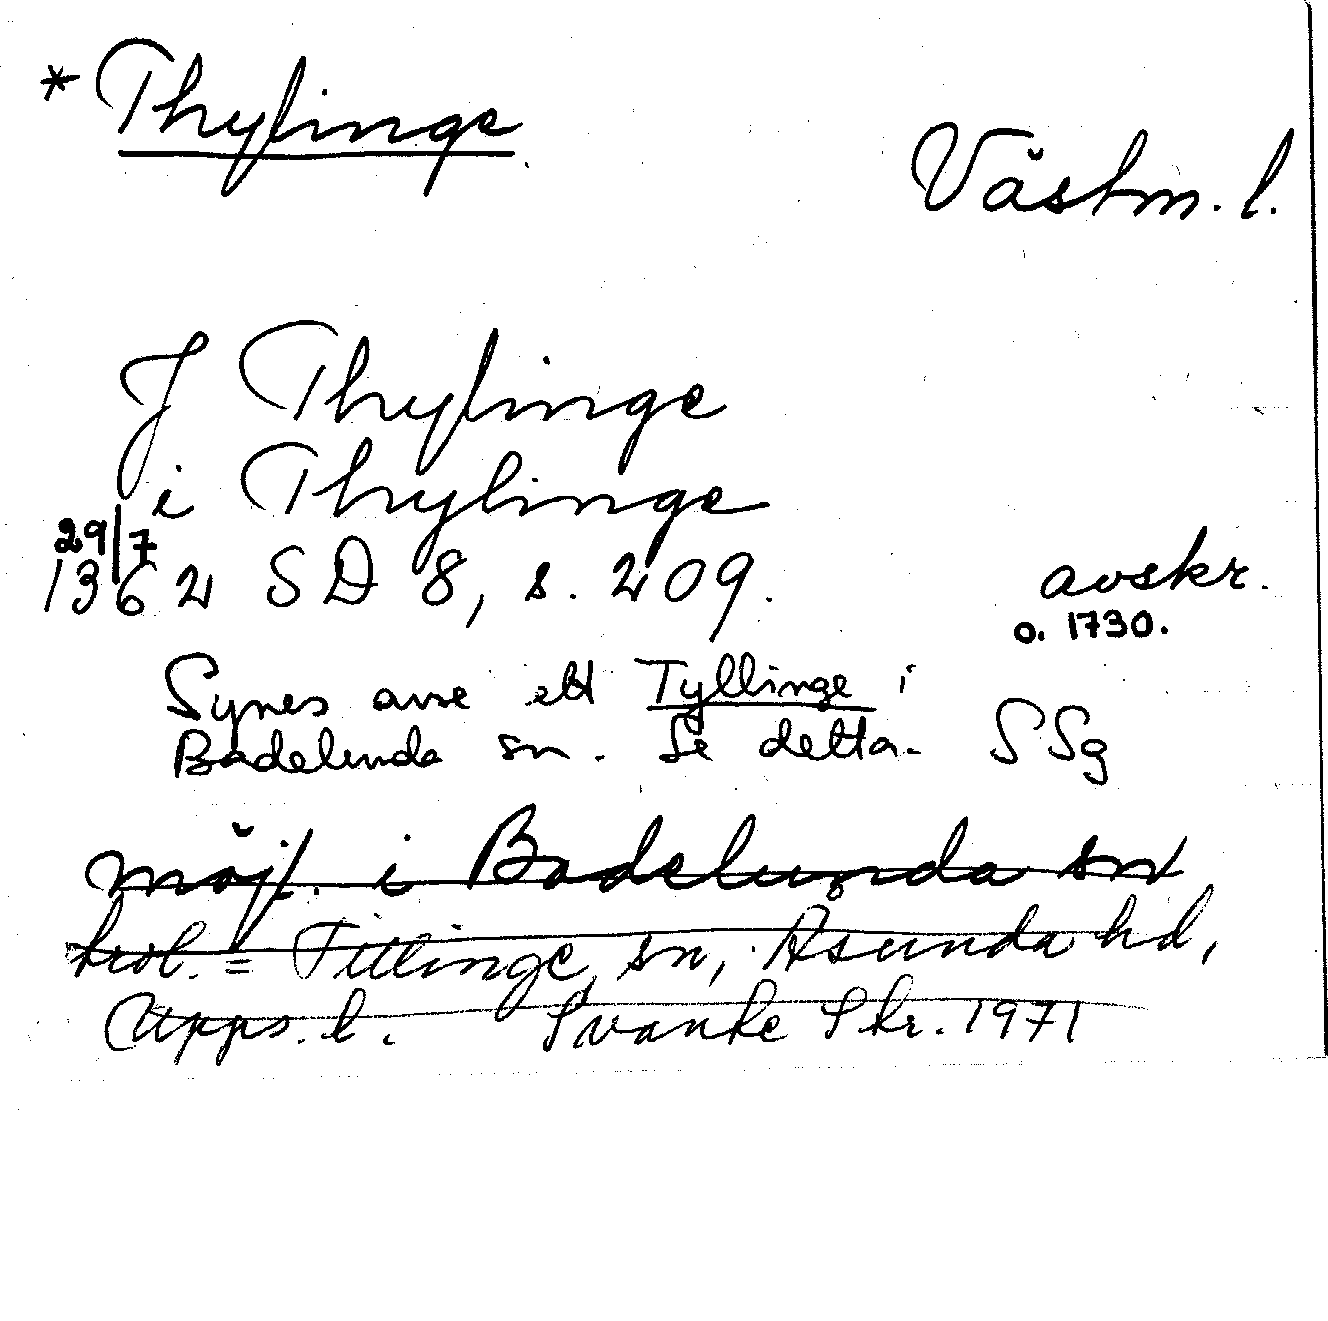 * Thylinge
Västm. l.
J Thylinge
i Thylinge
29/7
1362 SD 8, s. 209. avskr.
o. 1730.
Synes avse ett Tyllinge i
Badelunda sn. Se detta. SSg
möjl. i Badelunda sn
trol. = Tillinge sn, Åsunda hd,
Upps. l. Svanke Skr. 1971